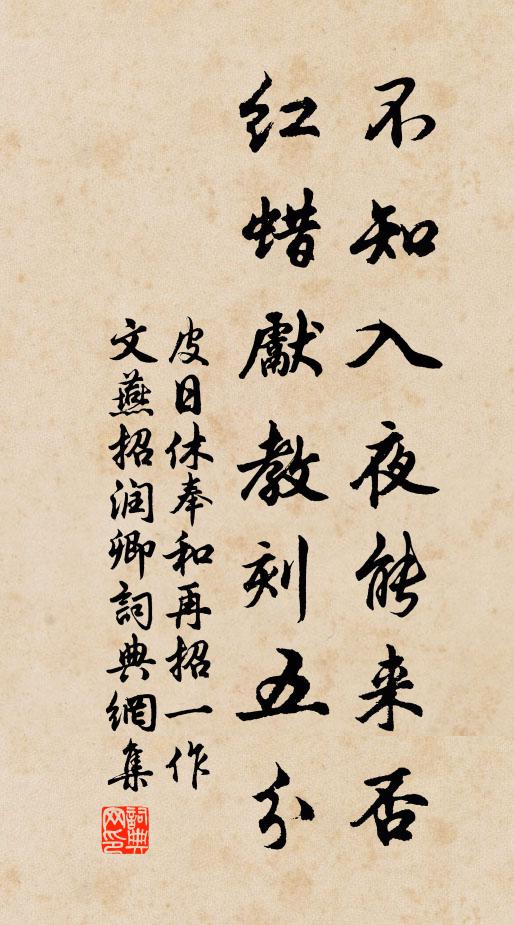 不知入夜能来否
红蜡獻教刻五分
皮日休奉和再招一作
文燕招润卿詞典網集
詞典网印